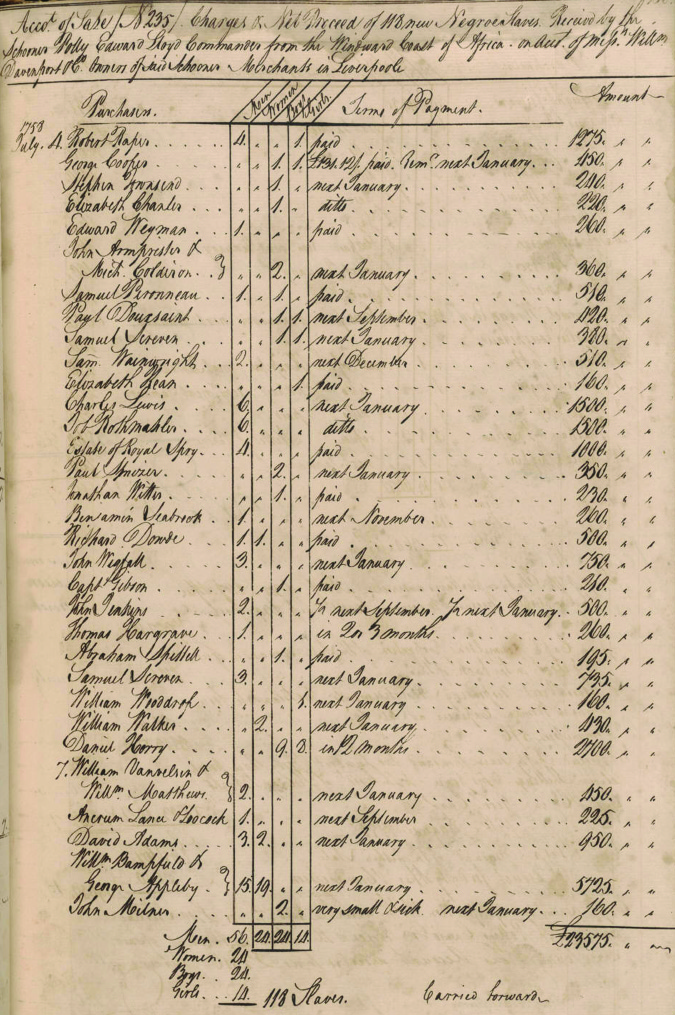 Acco.t of Sale / N.o 235 / Charges & Net Proceed of 118 new Negroe Slaves. Received by the
Schooner Polly Edward Lloyd Commander from the Windward Coast of Africa. on Acct. of Mess.rs Will.m
Davenport & C.o Owners of said Schooner Merchants in Liverpoole
Purchasers. Men Women Boys Girls. Terms of Payment. Amount
1758
July. 4. Robert Raper . . . 4. " " 1. paid . . . 1275. " "
George Cooper . . . " " 1. 1. next January . . . 450. " "
Stephen Townsend . . . " " 1. " next January . . . 240. " "
Elizabeth Chanler . . . " " 1. " ditto . . . 220. " "
Edward Weyman . . . 1. " " " paid . . . 260. " "
John Armprister &
Mich. Colderon . . } " " 2. " next January . . . 360. " "
Samuel Peronneau . . 1. " 1. " paid . . . 510. " "
Paul Douxsaint . . . " " 1. 1. next September . . . 420. " "
Samuel Screven . . . " " 1. 1. next January . . . 380. " "
Sam. Wainwright . . . 2. " " " next December . . . 510. " "
Elizabeth Bean . . . " " " 1. paid . . . 160. " "
Charles Lewis . . . 6. " " " next January . . . 1500. " "
Job Rothmahler . . . 6. " " " ditto . . . 1500. " "
Estate of Royal Spry . . 4. " " " paid . . . 1000. " "
Paul . . . " " 2. " next January . . . 350. " "
Jonathan Witter . . . " " 1. " paid . . . 230. " "
Benjamin Seabrook . . 1. " " " next November . . . 260. " "
Richard Dowde . . . 1. 1. " " paid . . . 500. " "
John Wigfall . . . 3. " " " next January . . . 750. " "
Capt.n Gibson . . . " " 1. " paid . . . 240. " "
John Jenkins . . . 2. " " " ½ next September. ½ next January . . 500. " "
Thomas Hargrave . . . 1. " " " in 2 or 3 months . . . 260. " "
Abraham Spidell . . . " " 1. " paid . . . 195. " "
Samuel Screven . . . 3. " " " next January . . . 735. " "
William Wooddrop . . . " " " 1. next January . . . 160. " "
William Walker . . . " 2. " " next January . . . 430. " "
Daniel Horry . . . " " 9. 8. in 12 months . . . 2700. " "
7. William Vanvelsin &
Will.m Matthews } 2. " " " next January . . . 450. " "
Ancrum Lance & Loocock 1. " " " next September . . . 225. " "
David Adams . . . 3. 2. " " next January . . . 950. " "
Will.m Bampfield &
George Appleby . . } 15. 19. " " next January . . . 5725. " "
John Milner . . . " " 2. " very small & sick next January . . . 160. " "
Men. 56. 24. 24. 14. £23575. " "
Women. 24
Boys. 24.
Girls . . 14. 118 Slaves. Carried forward